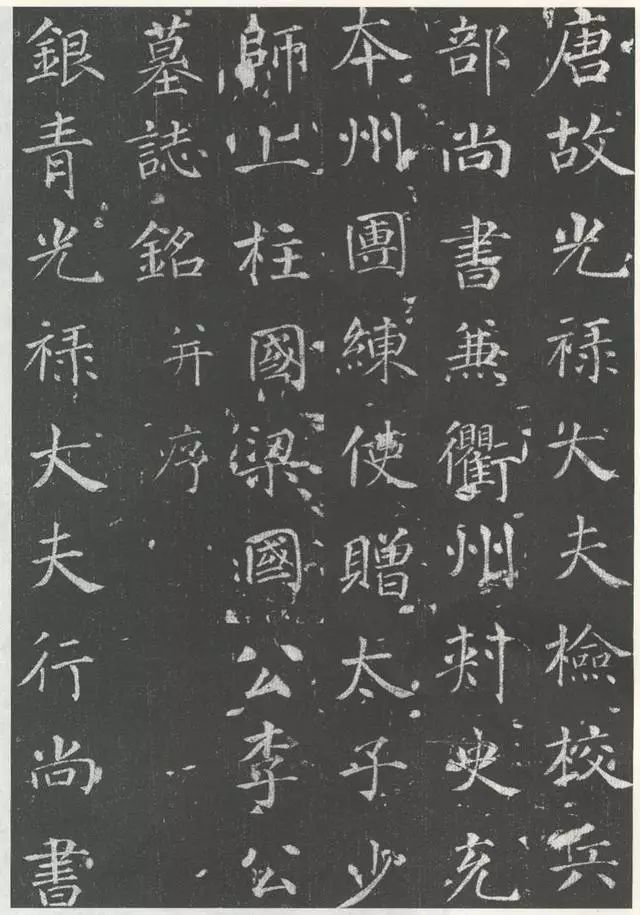 唐故光禄大夫檢校兵
部尚書兼衢州刺史充
本州團練使贈太子少
師上柱國梁國公李公
墓誌銘并序
銀青光禄大夫行尚書